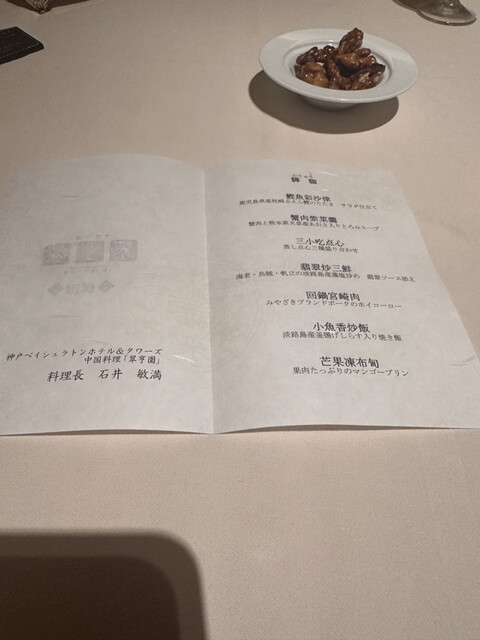 神戸ベイシェラトンホテル＆タワーズ
中国料理「翠亨園」
料理長　石井　敏満
鰹魚彩沙律
鹿児島県産枕崎ぶえん鰹のたたき　サラダ仕立て
蟹肉紫菜羹
蟹肉と熊本県天草産あおさ入りとろみスープ
三小吃点心
蒸し点心三種盛り合わせ
翡翠炒三鮮
海老・烏賊・帆立の淡路島産藻塩炒め　翡翠ソース添え
回鍋宮崎肉
みやざきブランドポークのホイコーロー
小魚香炒飯
淡路島産釜揚げしらす入り焼き飯
芒果凍布甸
果肉たっぷりのマンゴープリン